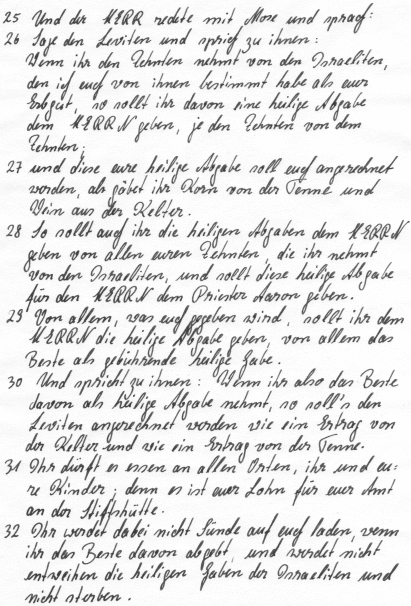 25 Und der HERR redete mit Mose und sprach:
26 Sage den Leviten und sprich zu ihnen:
Wenn ihr den Zehnten nehmt von den Israeliten,
den ich euch von ihnen bestimmt habe als euer
Erbgut, so sollt ihr davon eine heilige Abgabe
dem HERRN geben, je den Zehnten von dem
Zehnten;
27 und diese eure heilige Abgabe soll euch angerechnet
werden, als gäbet ihr Korn von der Tenne und
Wein aus der Kelter.
28 So sollt auch ihr die heiligen Abgaben dem HERRN
geben von allen euren Zehnten, die ihr nehmt
von den Israeliten, und sollt diese heilige Abgabe
für den HERRN dem Priester Aaron geben.
29 Von allem, was euch gegeben wird, sollt ihr dem
HERRN die heilige Abgabe geben, von allem das
Beste als gebührende heilige Gabe.
30 Und sprich zu ihnen: Wenn ihr also das Beste
davon als heilige Abgabe nehmt, so soll's den
Leviten angerechnet werden wie ein Ertrag von
der Kelter und wie ein Ertrag von der Tenne.
31 Ihr dürft es essen an allen Orten, ihr und eu-
re Kinder; denn es ist euer Lohn für euer Amt
an der Stiftshütte.
32 Ihr werdet dabei nicht Sünde auf euch laden, wenn
ihr das Beste davon abgebt, und werdet nicht
entweihen die heiligen Gaben der Israeliten und
nicht sterben.